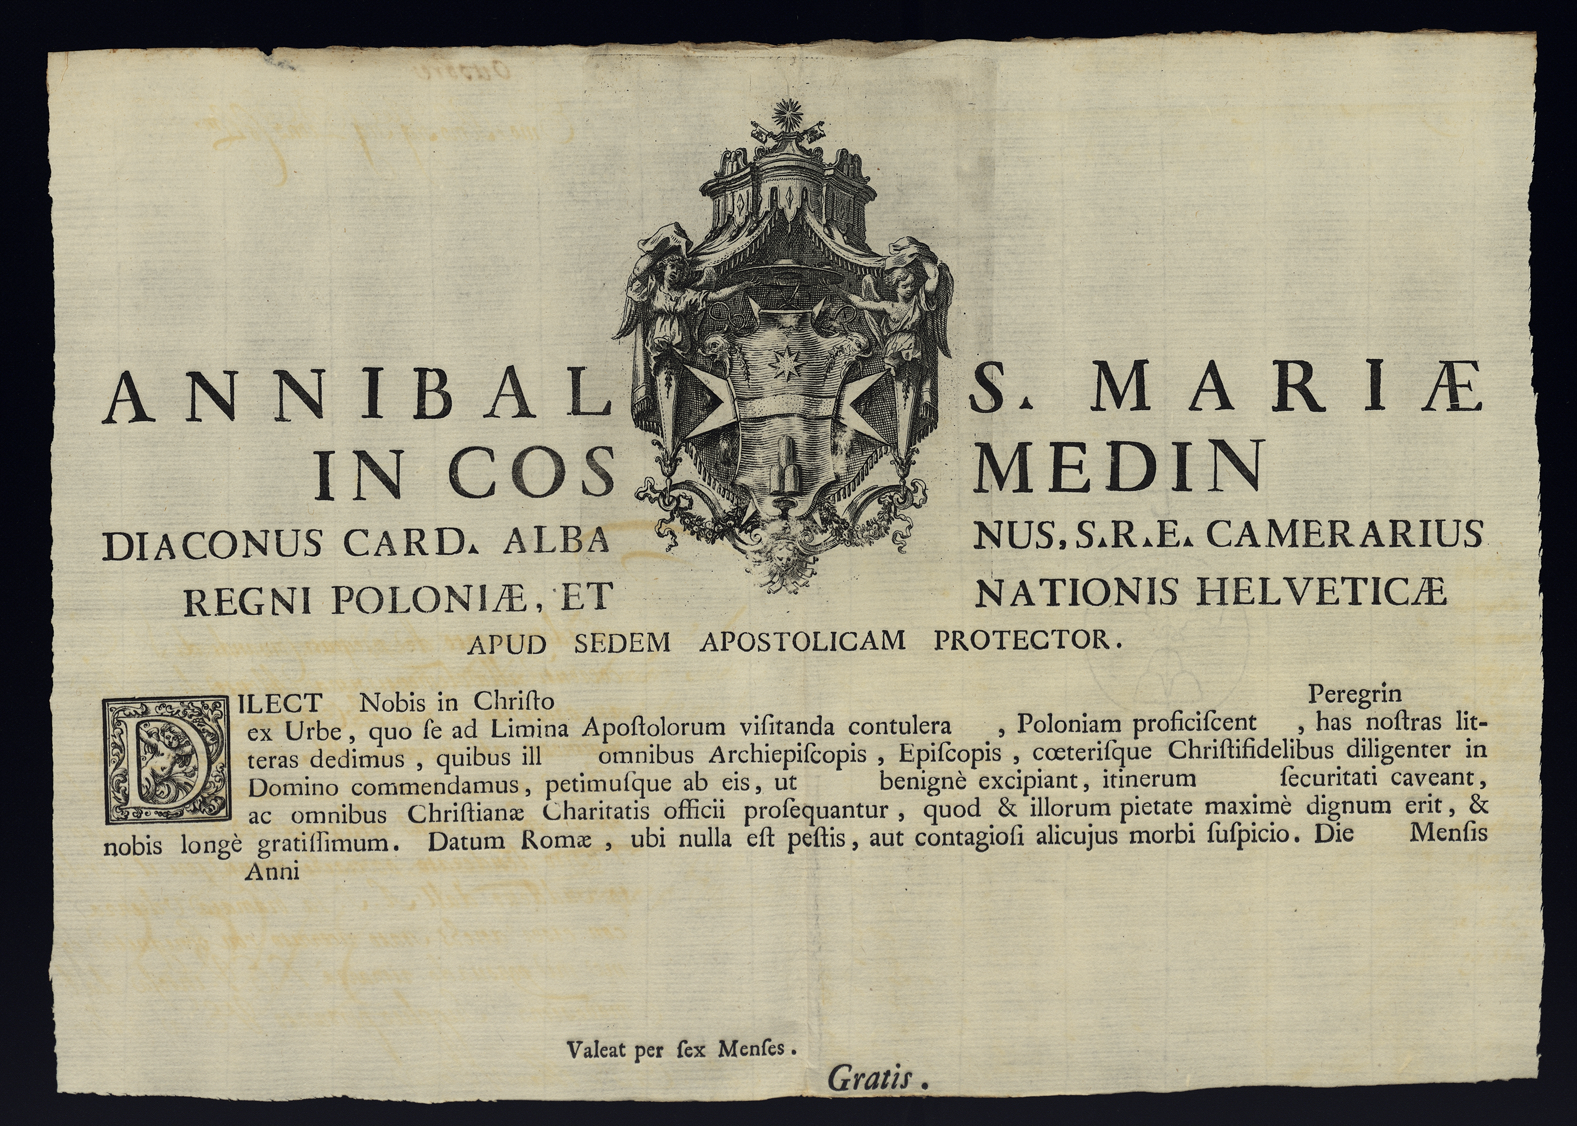 ANNIBAL S. MARIÆ
IN COS MEDIN
DIACONUS CARD. ALBA NUS, S.R.E. CAMERARIUS
REGNI POLONIÆ, ET NATIONIS HELVETICÆ
APUD SEDEM APOSTOLICAM PROTECTOR.
DILECT Nobis in Chriſto Peregrin
ex Urbe, quo ſe ad Limina Apoſtolorum viſitanda contulera , Poloniam proficiſcent , has noſtras lit-
teras dedimus, quibus ill omnibus Archiepiſcopis, Epiſcopis, cœteriſque Chriſtifidelibus diligenter in
Domino commendamus, petimuſque ab eis, ut benignè excipiant, itinerum ſecuritati caveant,
ac omnibus Chriſtianæ Charitatis officii proſequantur, quod & illorum pietate maximè dignum erit, &
nobis longè gratiſſimum. Datum Romæ, ubi nulla eſt peſtis, aut contagioſi alicujus morbi ſuſpicio. Die Menſis
Anni
Valeat per ſex Menſes.
Gratis.